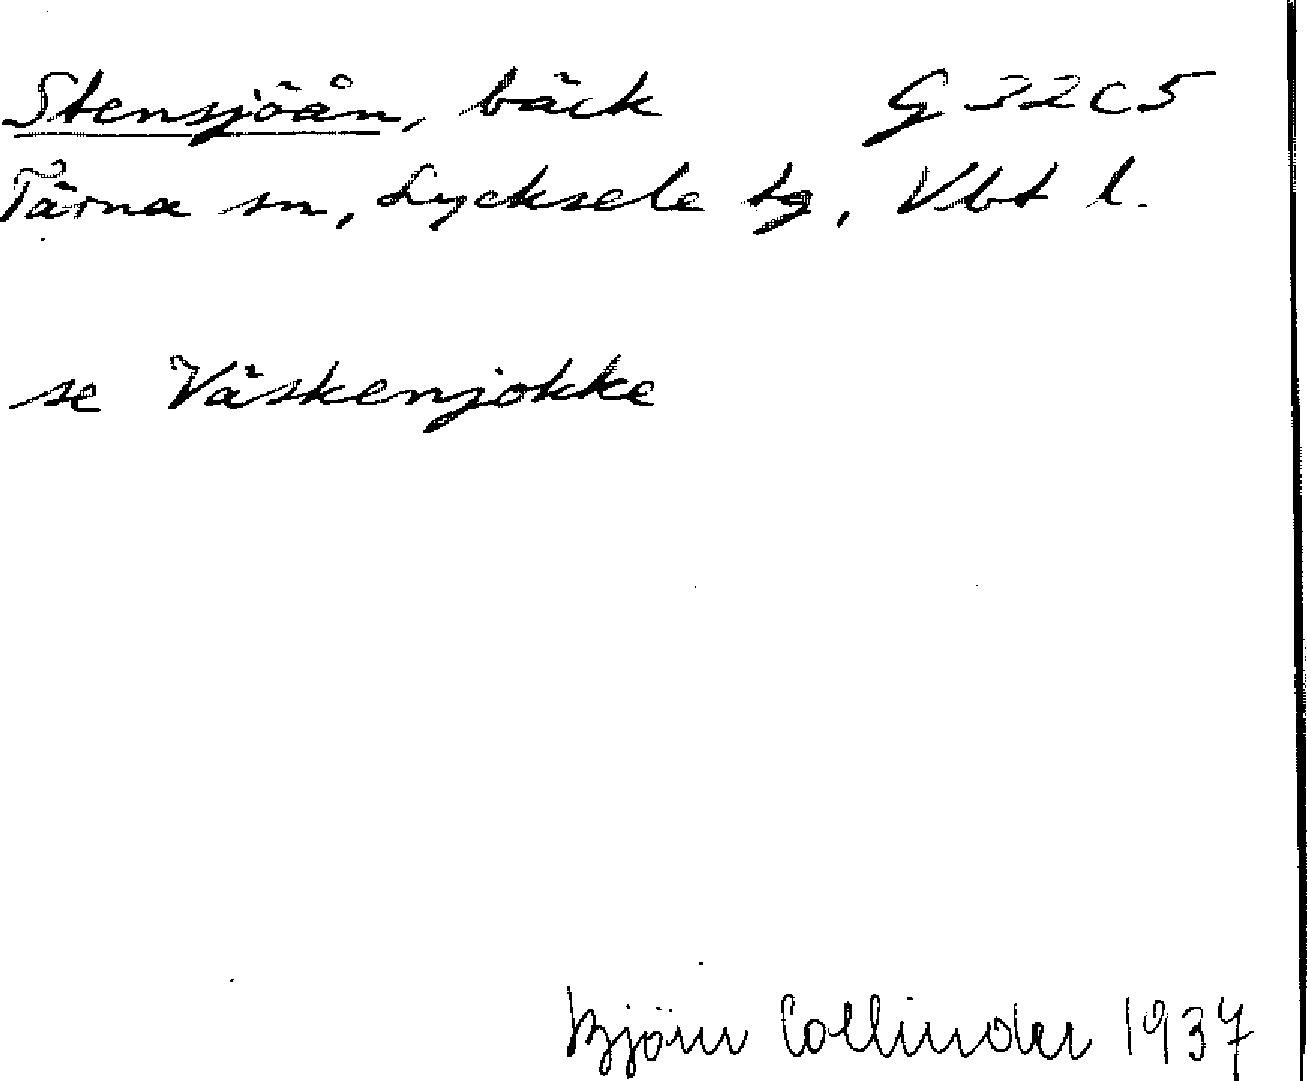 Stensjöån, bäck G 32 C 5
Tärna sn, Lycksele lg, Vbt l.
se Väskenjokke
Björn Collinder 1937